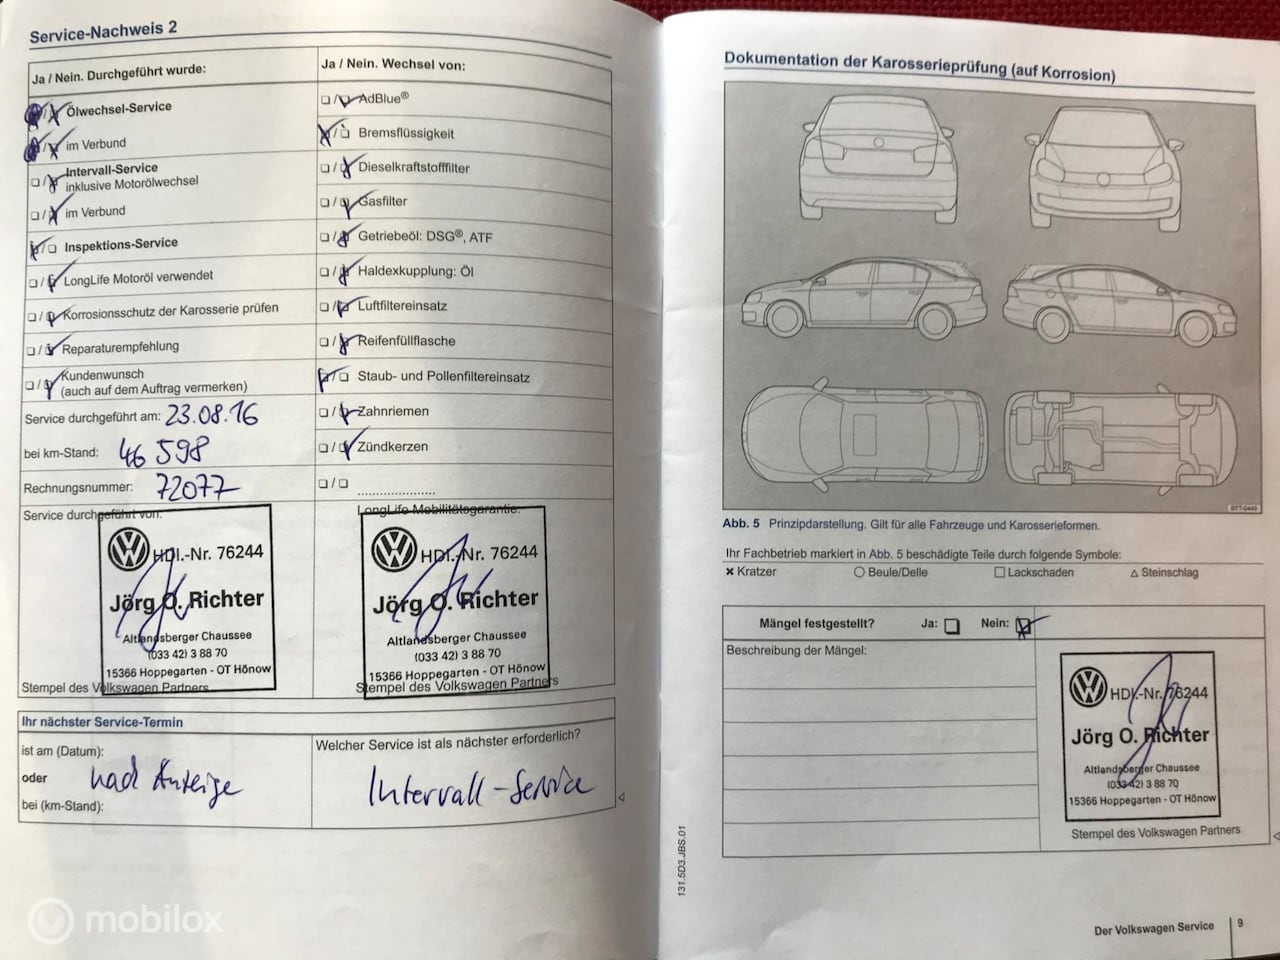 Service-Nachweis 2
Ja / Nein. Durchgeführt wurde:
Ölwechsel-Service
im Verbund
Intervall-Service
inklusive Motorölwechsel
im Verbund
Inspektions-Service
LongLife Motoröl verwendet
Korrosionsschutz der Karosserie prüfen
Reparaturempfehlung
Kundenwunsch
(auch auf dem Auftrag vermerken)
Service durchgeführt am: 23.08.16
bei km-Stand: 46 598
Rechnungsnummer: 72077
Service durchgeführt von:
HDl.-Nr. 76244
Jörg O. Richter
Altlandsberger Chaussee
(033 42) 3 88 70
15366 Hoppegarten - OT Hönow
Stempel des Volkswagen Partners
Ja / Nein. Wechsel von:
AdBlue®
Bremsflüssigkeit
Dieselkraftstofffilter
Gasfilter
Getriebeöl: DSG®, ATF
Haldexkupplung: Öl
Luftfiltereinsatz
Reifenfüllflasche
Staub- und Pollenfiltereinsatz
Zahnriemen
Zündkerzen
LongLife Mobilitätsgarantie:
HDl.-Nr. 76244
Jörg O. Richter
Altlandsberger Chaussee
(033 42) 3 88 70
15366 Hoppegarten - OT Hönow
Stempel des Volkswagen Partners
Ihr nächster Service-Termin
ist am (Datum):
oder nach Anzeige
bei (km-Stand):
Welcher Service ist als nächster erforderlich?
Intervall-Service
mobilox
Dokumentation der Karosserieprüfung (auf Korrosion)
B71-0449
Abb. 5 Prinzipdarstellung. Gilt für alle Fahrzeuge und Karosserieformen.
Ihr Fachbetrieb markiert in Abb. 5 beschädigte Teile durch folgende Symbole:
× Kratzer ○ Beule/Delle □ Lackschaden △ Steinschlag
Mängel festgestellt? Ja: Nein:
Beschreibung der Mängel:
HDl.-Nr. 76244
Jörg O. Richter
Altlandsberger Chaussee
(033 42) 3 88 70
15366 Hoppegarten - OT Hönow
Stempel des Volkswagen Partners
131.5D3.JBS.01
Der Volkswagen Service 9